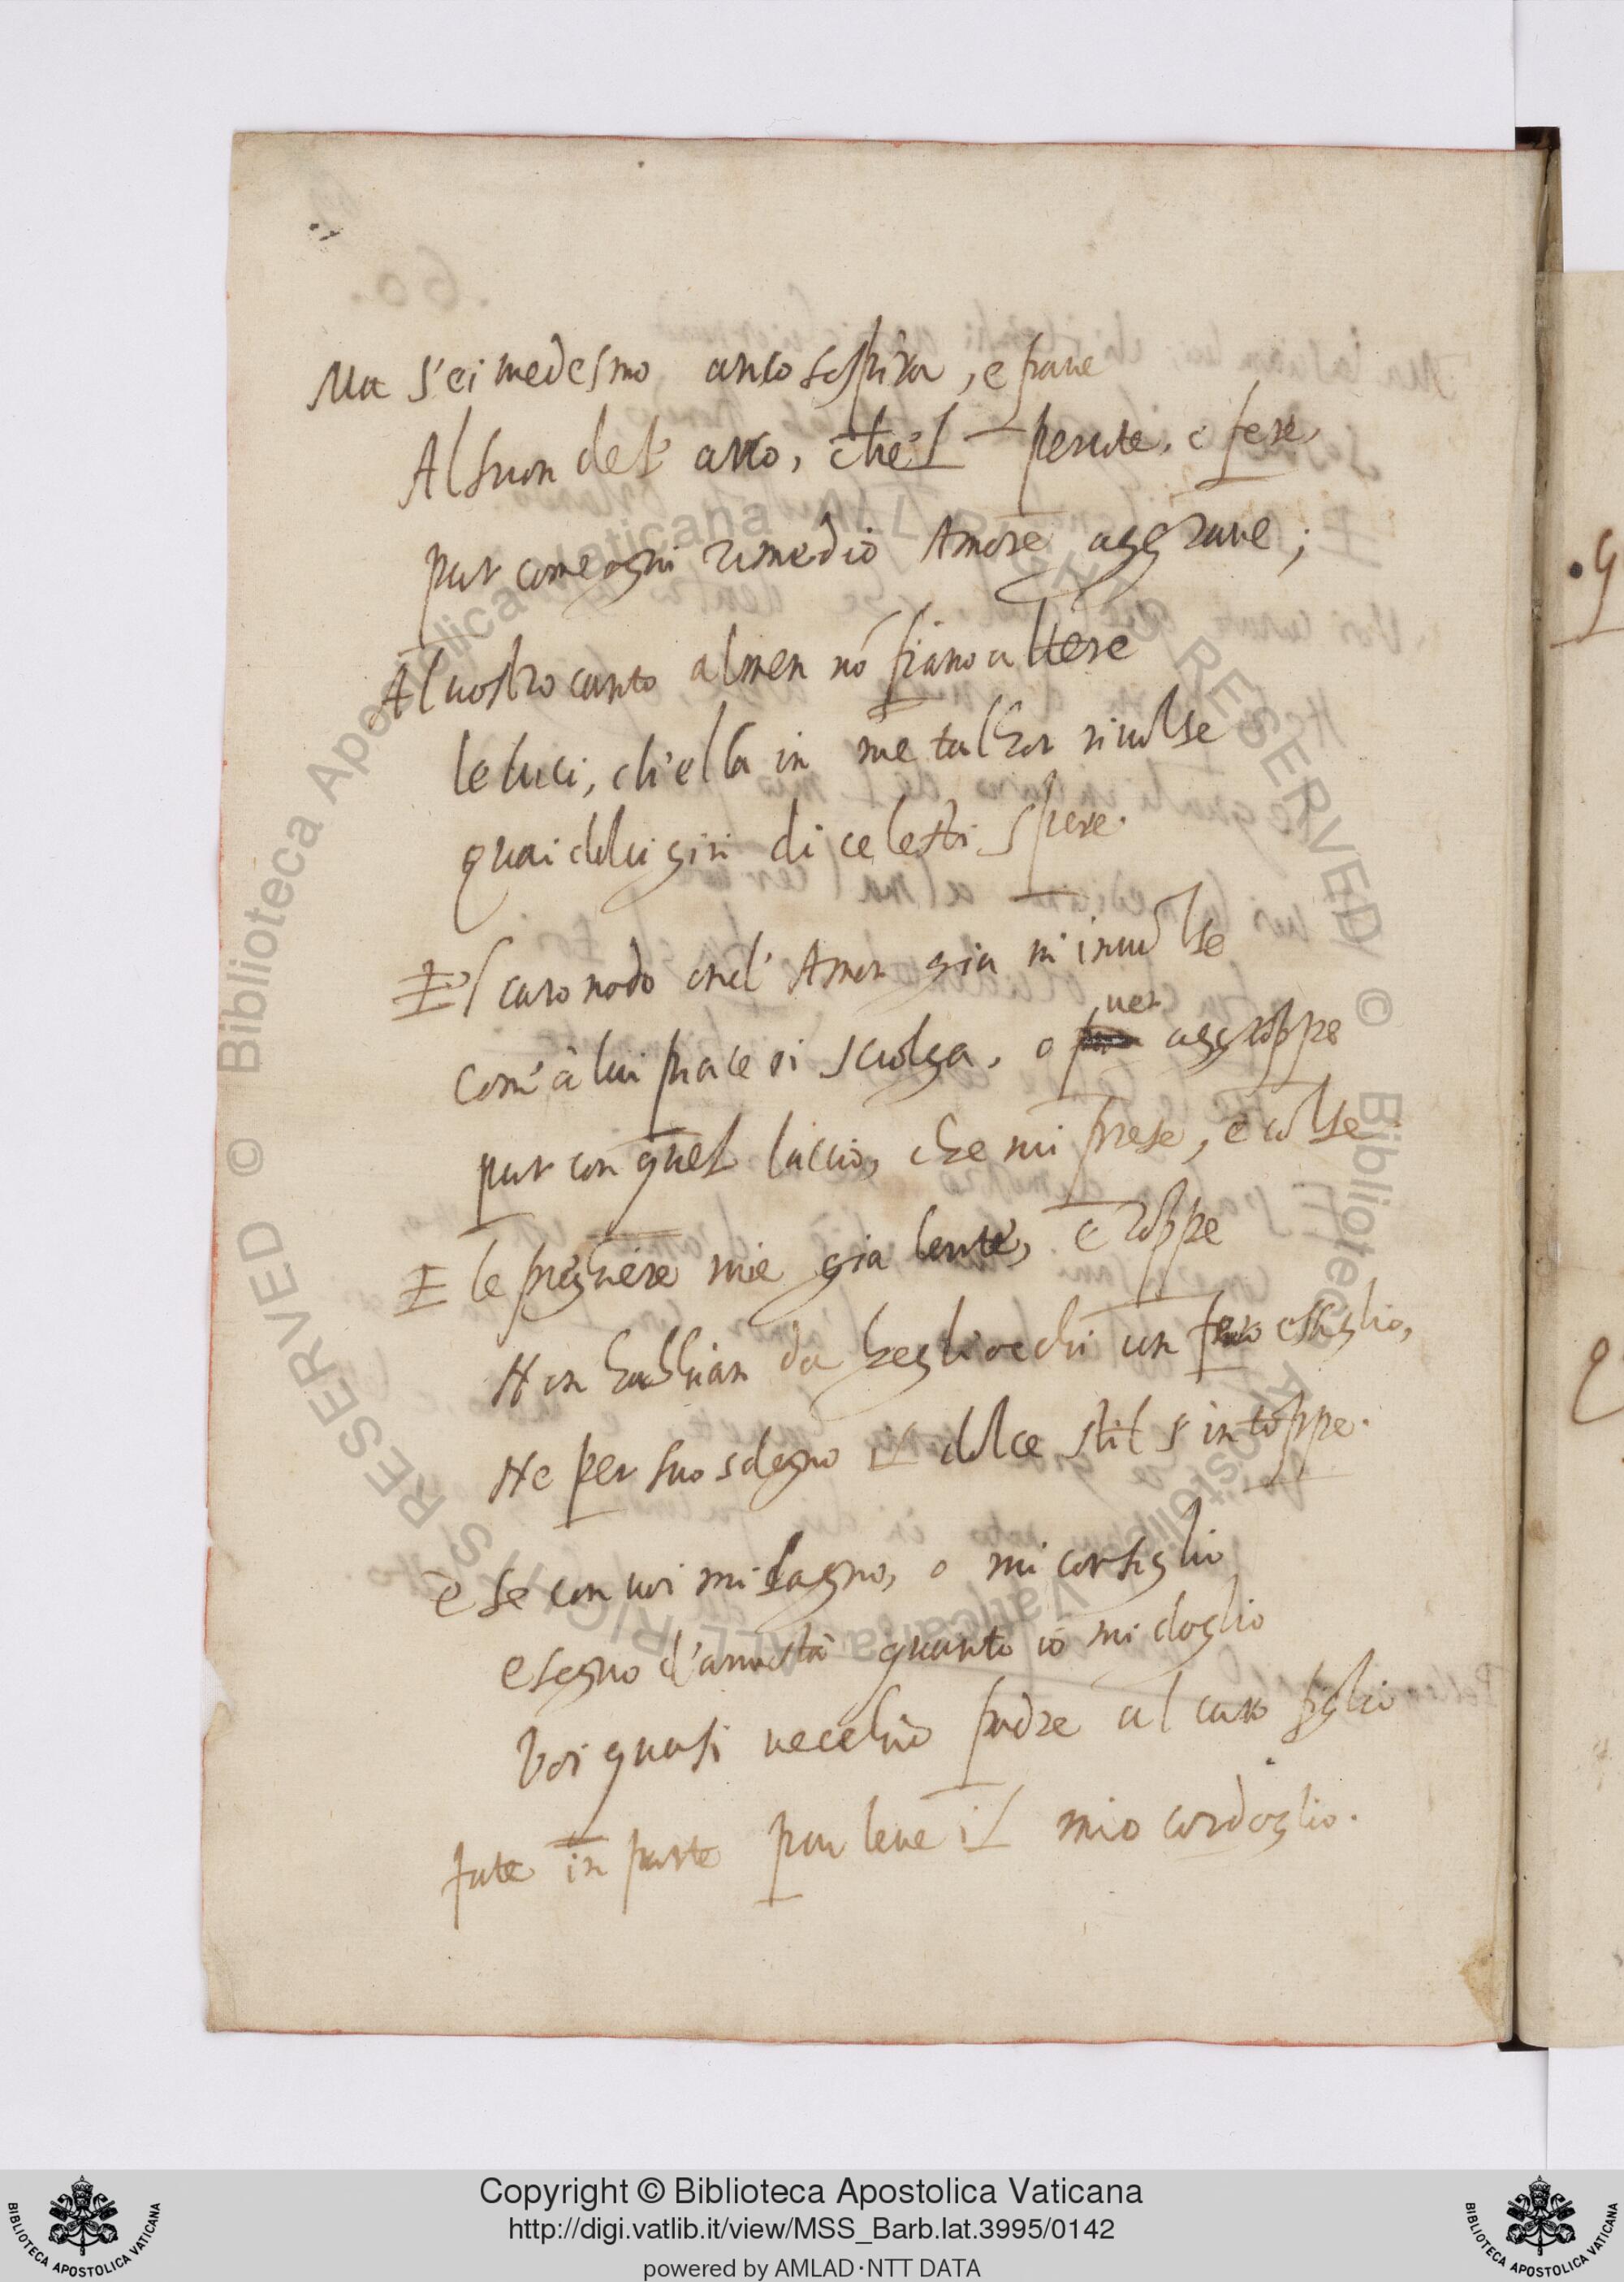 Ma s'ei medesmo anco sospira, e paue
Al suon del' arco, che'l percote, e fere,
pur come ogni rimedio Amore aggraue;
Al uostro canto almen nō siano altere
le luci, ch'ella in me talhor riuolse
quai dolci giri di celesti spere.
E'l caro nodo ond' Amor gia m'inuolse
Com' à lui piace si sciolga, o uer aggroppe
pur con quel laccio, che mi prese, e colse
E le preghiere mie gia lente, e zoppe
Non habbian da begli occhi un fero essiglio,
Ne per suo sdegno il dolce stil s'intoppe.
e se con uoi mi lagno, o mi consiglio
e segno d'amistà quanto io mi doglio
Voi quasi uecchio padre al caro figlio
fate in parte piu leue il mio cordoglio.
.60.
Copyright © Biblioteca Apostolica Vaticana
http://digi.vatlib.it/view/MSS_Barb.lat.3995/0142
powered by AMLAD·NTT DATA
BIBLIOTECA APOSTOLICA VATICANA
BIBLIOTECA APOSTOLICA VATICANA
© Biblioteca Apostolica Vaticana ALL RIGHTS RESERVED
© Biblioteca Apostolica Vaticana ALL RIGHTS RESERVED